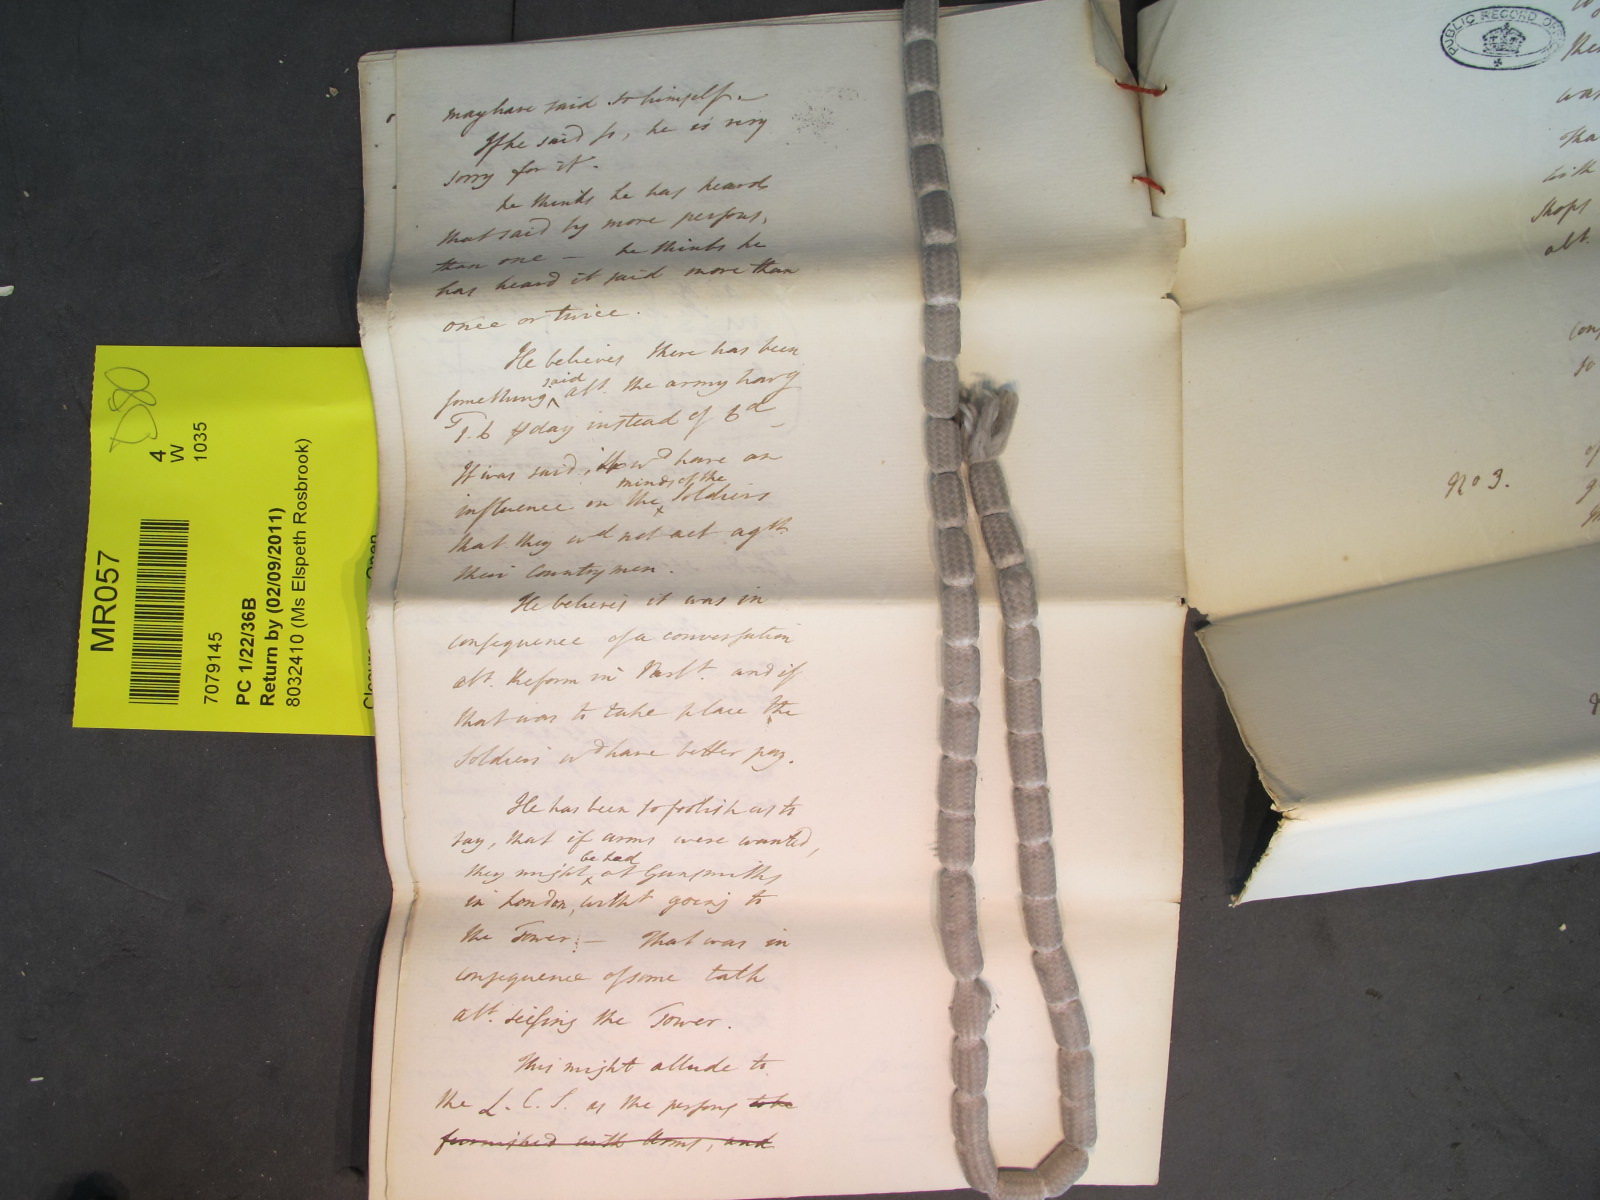 may have said so himself. —
If he said so, he is very
sorry for it.
he thinks he has heard
that said by more persons,
than one — he thinks he
has heard it said more than
once or twice.
He believes there has been
something said abt. the army havg
1. 6 day instead of 6d
It was said, it wd have an
influence on the minds of the Soldiers
that they wd not act agst
their Countrymen.
He believes it was in
consequence of a conversation
abt. Reform in Parlt. and if
that was to take place the
Soldiers wd have better pay.
He has been so foolish as to
say, that if arms were wanted,
they might be had at Gunsmiths
in London, witht going to
the Tower; — That was in
consequence of some talk
abt. seising the Tower.
This might allude to
the L. C. S. as the persons to be
furnished with Arms, and
MR057
7079145
PC 1/22/36B
Return by (02/09/2011)
8032410 (Ms Elspeth Rosbrook)
4
W
1035
D80
PUBLIC RECORD OFFICE
was
with
shops
abt.
so
No 3.